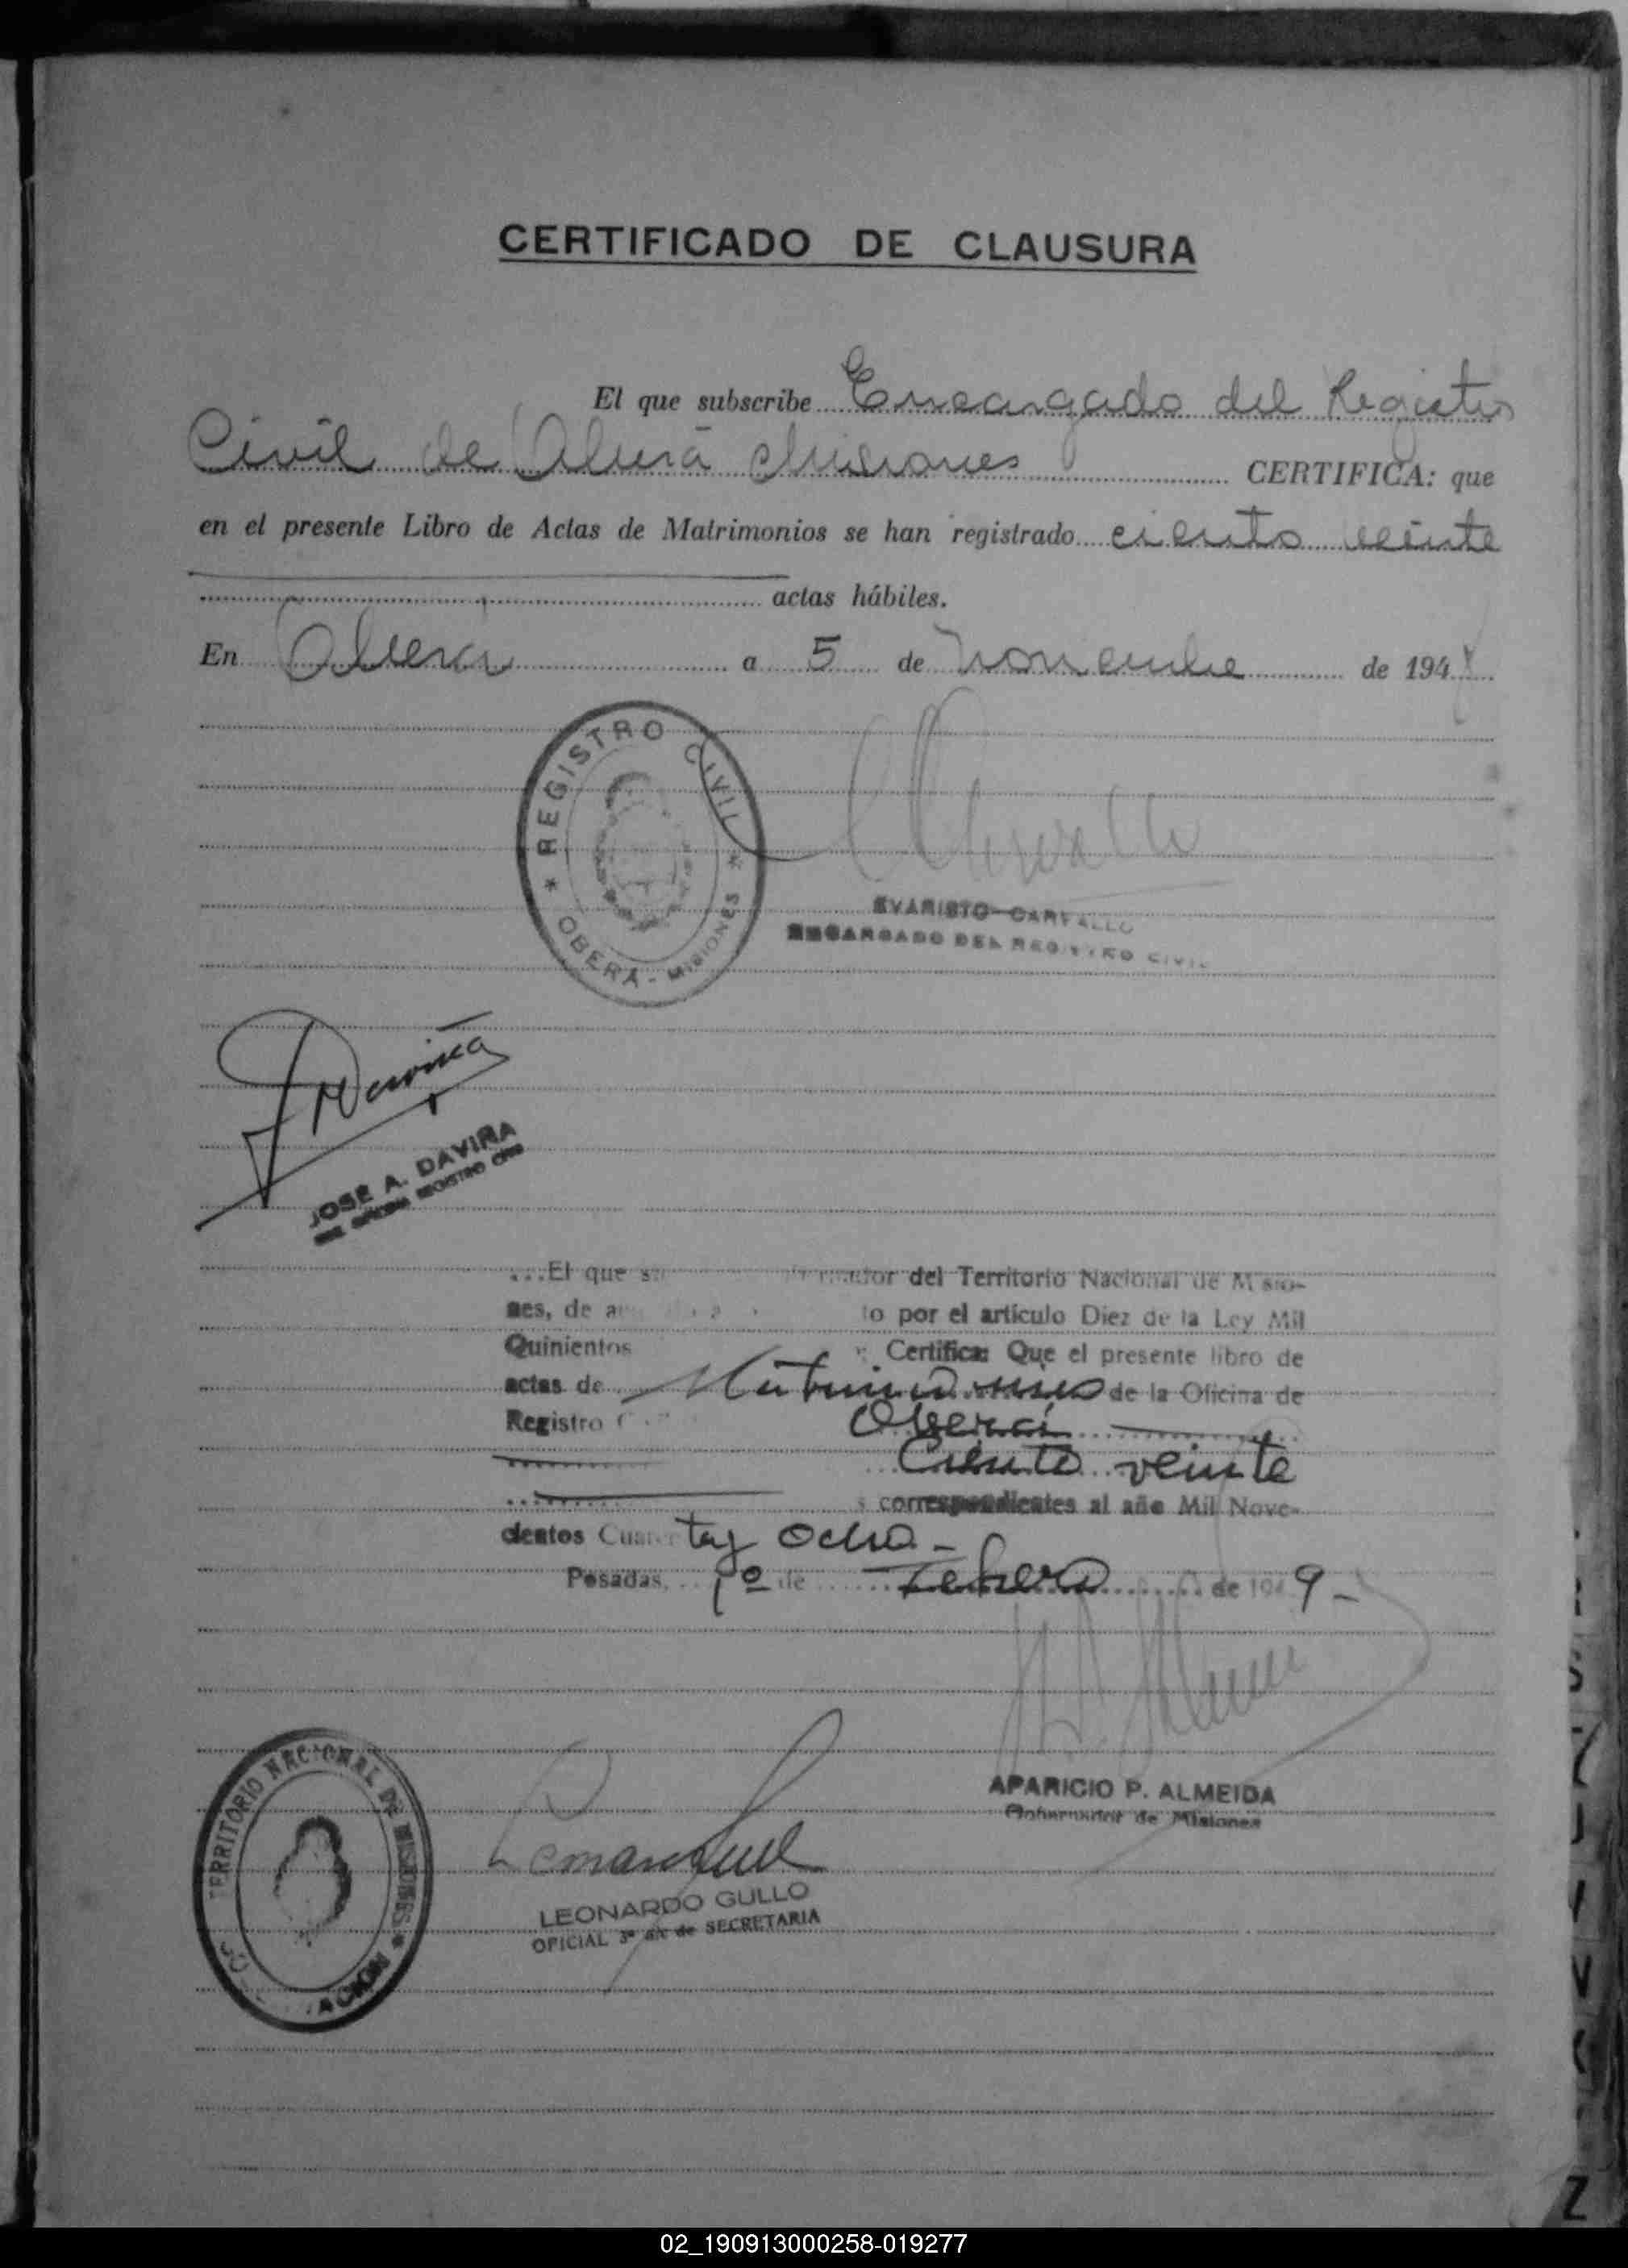 CERTIFICADO DE CLAUSURA
El que subscribe Encargado del Registro
Civil de Oberá Misiones CERTIFICA: que
en el presente Libro de Actas de Matrimonios se han registrado ciento veinte
actas hábiles.
En Oberá a 5 de noviembre de 194
REGISTRO CIVIL
OBERÁ - MISIONES
EVARISTO CARVALLO
ENCARGADO DEL REGISTRO CIVIL
JOSE A. DAVIÑA
REGISTRO CIVIL
El que del Territorio Nacional de Misio-
nes, de por el artículo Diez de la Ley Mil
Quinientos Certifica: Que el presente libro de
actas de Matrimonios de la Oficina de
Registro Oberá
Ciento veinte
correspondientes al año Mil Nove-
cientos Cuarenta y ocho -
Posadas, 1º de Febrero de 1949 -
APARICIO P. ALMEIDA
Gobernador de Misiones
TERRITORIO NACIONAL DE MISIONES
LEONARDO GULLO
OFICIAL 3º de SECRETARIA
02_190913000258-019277